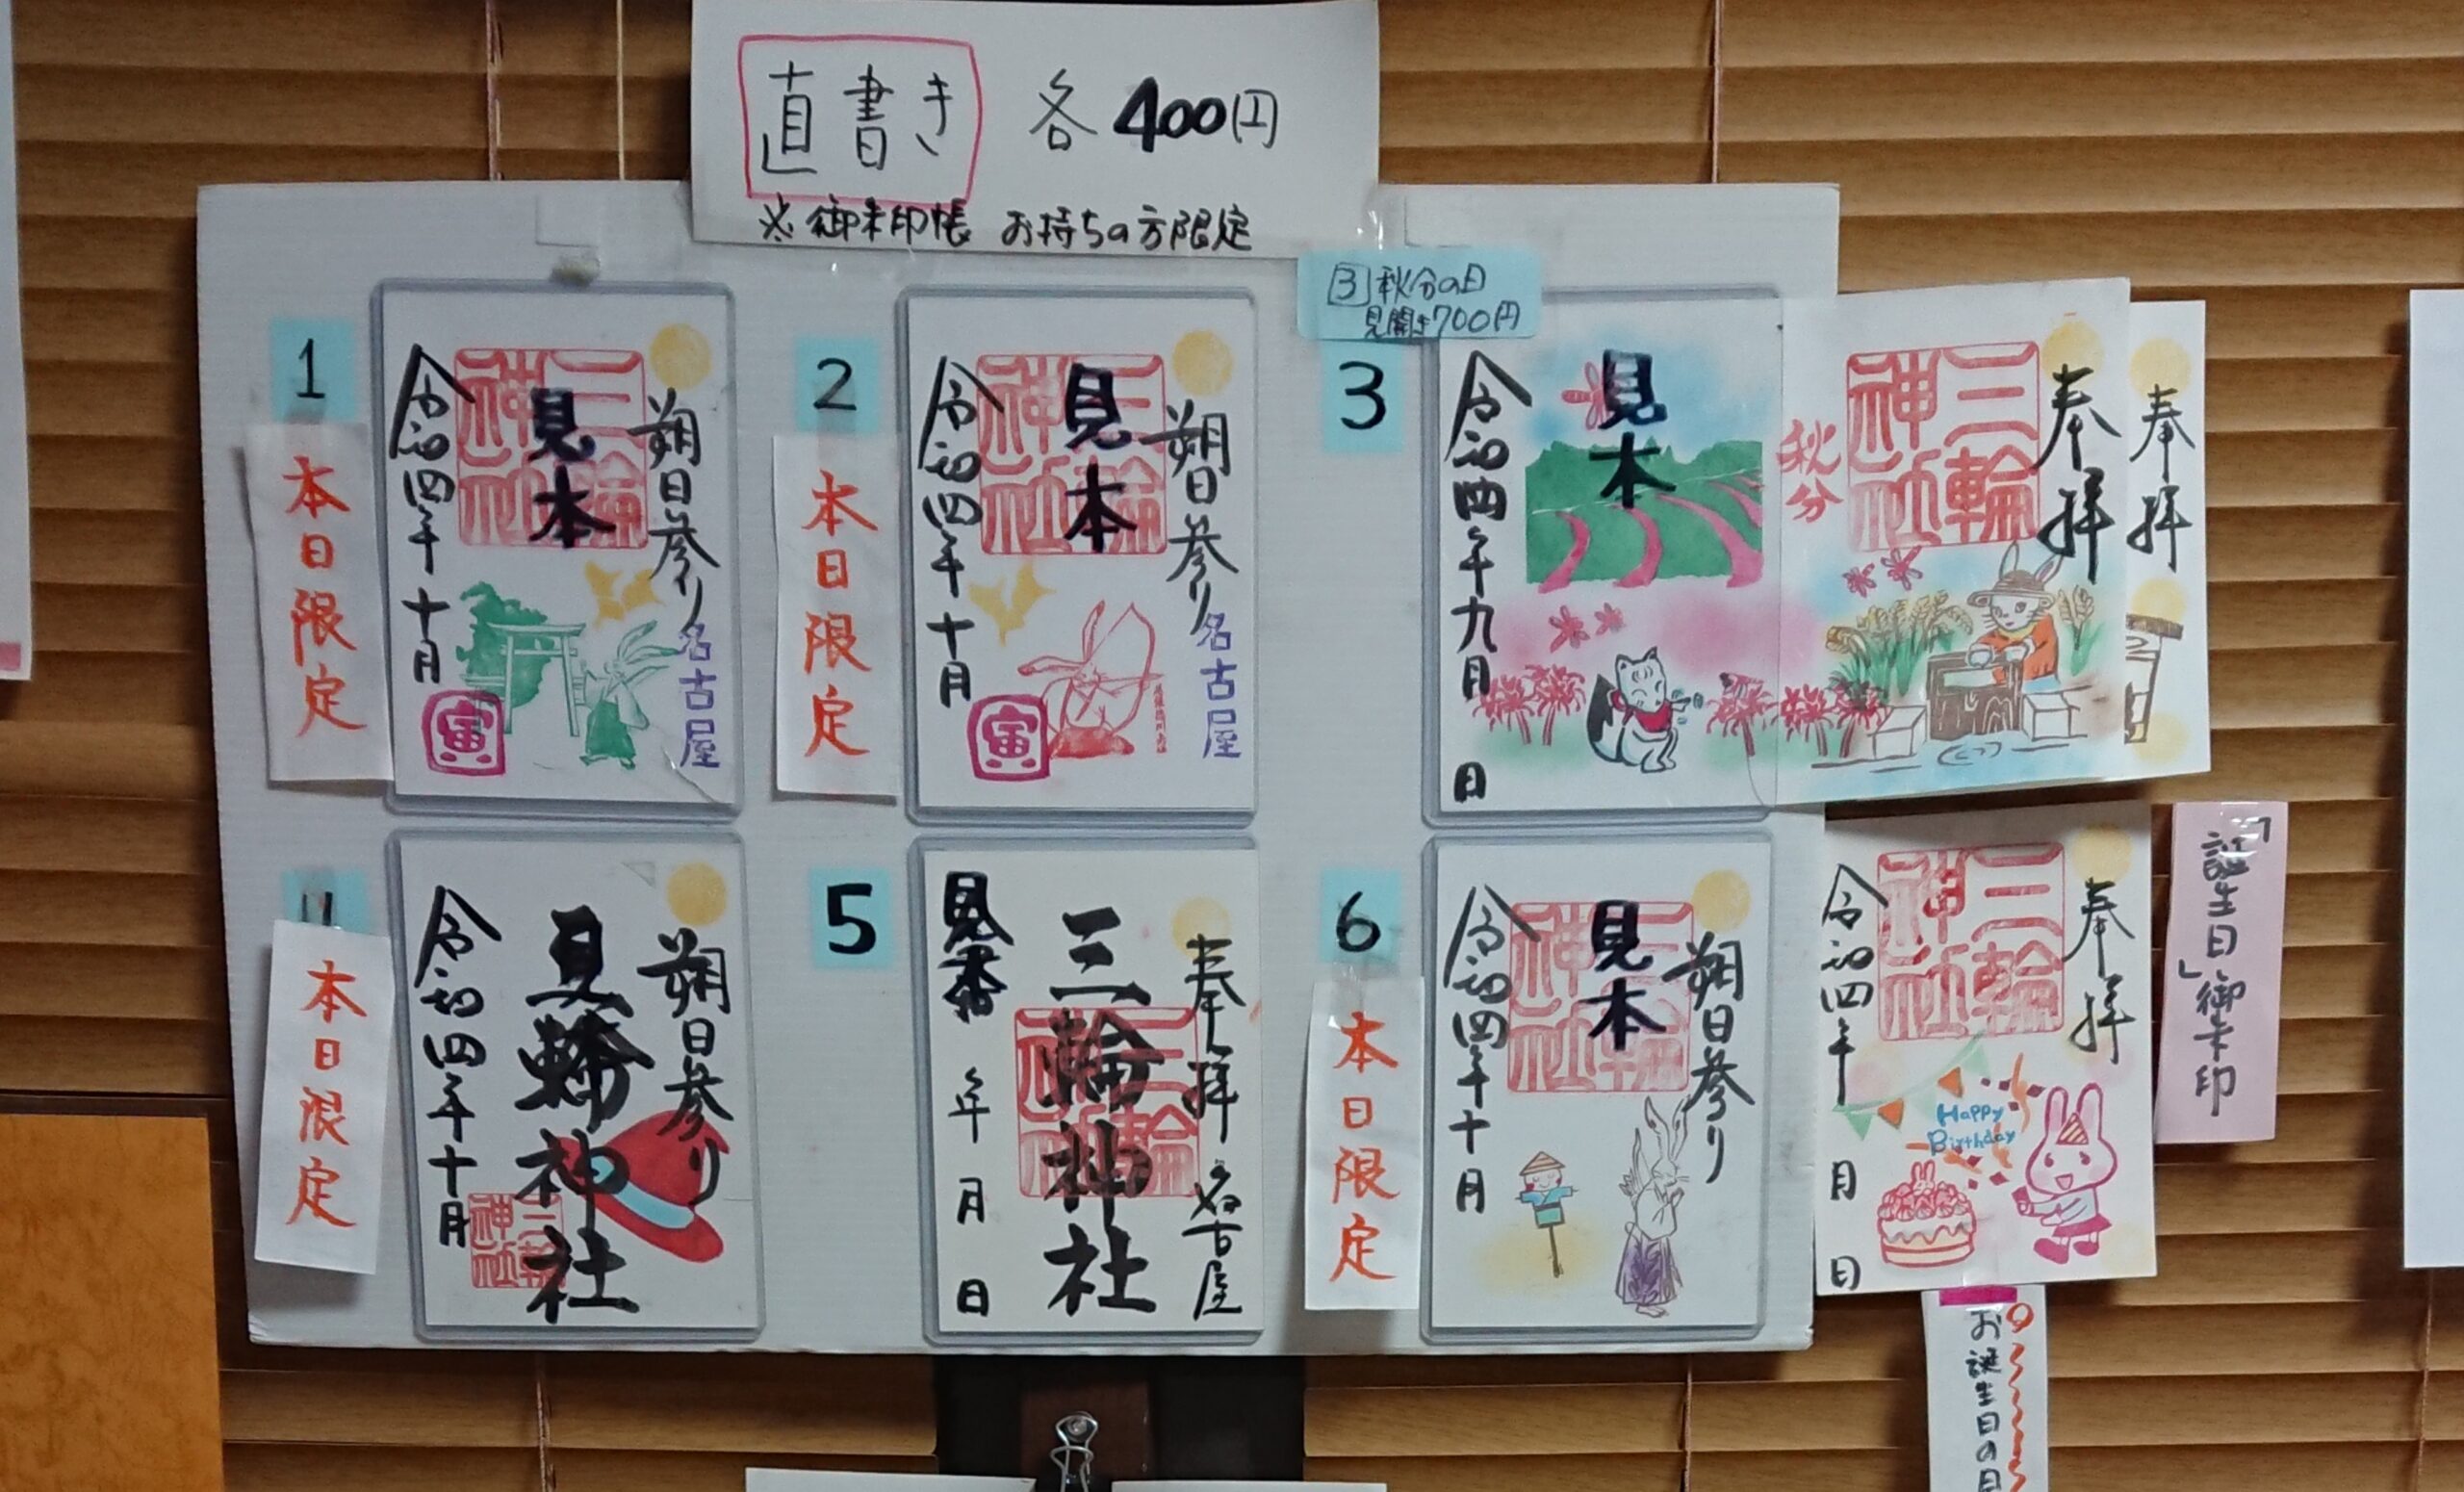 直書き 各400円
※御朱印帳 お持ちの方限定
1
本日限定
朔日参り
名古屋
三輪神社
見本
令和四年十月
寅
2
本日限定
朔日参り
名古屋
三輪神社
見本
令和四年十月
寅
3 秋分の日
見開き700円
3
奉拝
奉拝
三輪神社
秋分
見本
令和四年九月 日
本日限定
朔日参り
三輪神社
三輪神社
令和四年十月
5
奉拝 名古屋
三輪神社
三輪神社
見本
年 月 日
6
本日限定
朔日参り
三輪神社
見本
令和四年十月
奉拝
三輪神社
令和四年 月 日
Happy
Birthday
「誕生日」御朱印
お誕生日の日